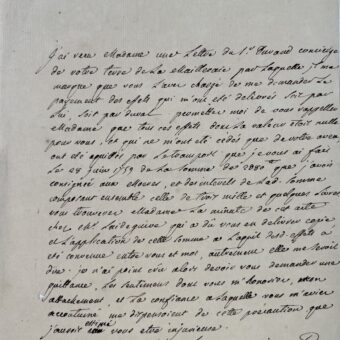 j'ai vu Madame une Lettre de S.r Durand concierge
de votre terre de La Mailleraie par Laquelle il me
marque que vous L'avez chargé de me demander Le
payement des effets qui m'ont été délivrés soit par
Lui, soit par permettez moi de vous rappeller
Madame que tous ces effets dont La valeur étoit nulle
pour vous, et qui ne m'ont été cédés que de votre aveu
ont été aquittés par Le transport que je vous ai fait
Le 28 juin 1759 de La somme de 2880 que j'avois
consignée aux et des interets de Lad. somme
composant ensemble celle de trois mille et quelques Livres
vous trouverez Madame La minute de cet acte
chez Me. qui a dû vous en délivrer copie
et L'application de cette somme a L'aquit desd. effets a
été convenue entre vous et moi, autrement elle me seroit
due. je n'ai point cru alors devoir vous demander une
quittance. Les sentimens dont vous m'honoriez, mon
attachement, et La confiance a Laquelle vous m'aviez
accoutumé me dispensoient de cette précaution que
j'aurois estimé vous etre injurieuse.